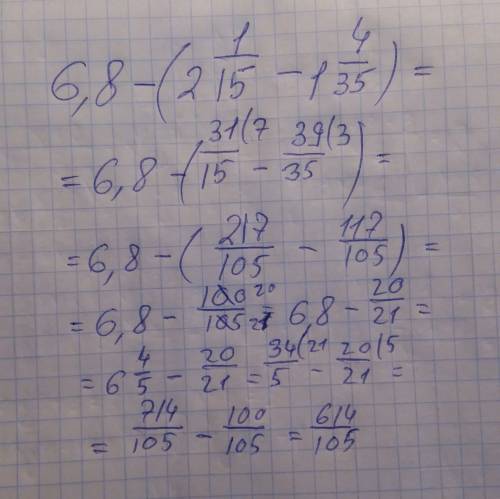 6,8 - (2 1/15 - 1 4/35) =
= 6,8 - (31/15 (7 - 39/35 (3) =
= 6,8 - (217/105 - 117/105) =
= 6,8 - 100/105 20/21 = 6,8 - 20/21 =
= 6 4/5 - 20/21 = 34/5 (21 - 20/21 (5 =
= 714/105 - 100/105 = 614/105